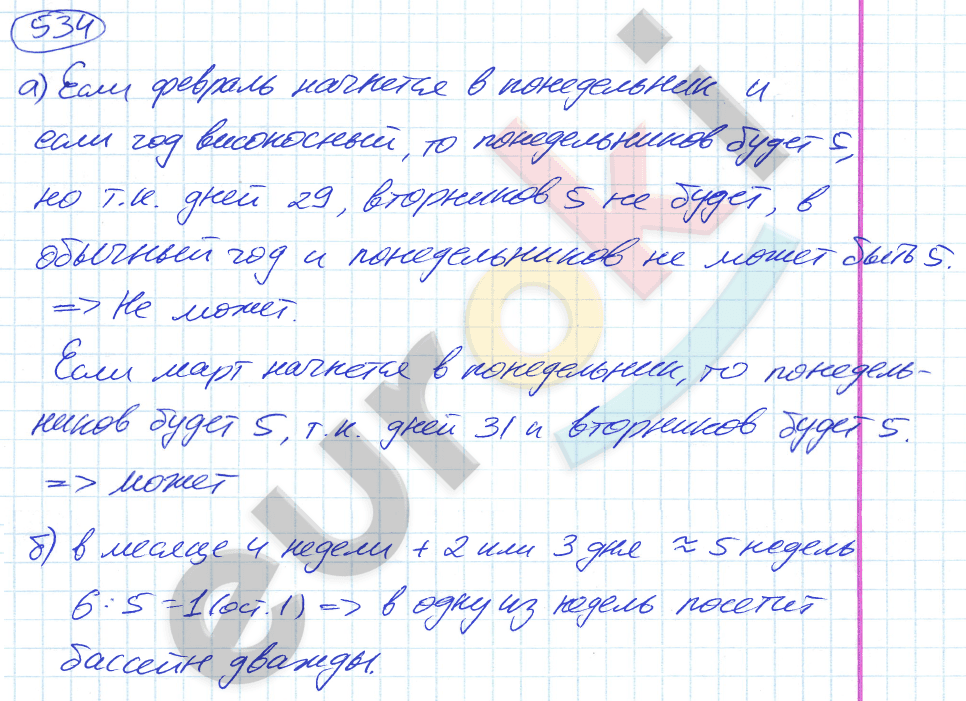 534
а) Если февраль начнется в понедельник и
если год високосный, то понедельников будет 5,
но т.к. дней 29, вторников 5 не будет, в
обычный год и понедельников не может быть 5.
=> Не может.
Если март начнется в понедельник, то понедель-
ников будет 5, т.к. дней 31 и вторников будет 5.
=> может
б) в месяце 4 недели + 2 или 3 дня ≈ 5 недель
6 : 5 = 1 (ост. 1) => в одну из недель посетит
бассейн дважды.
euroki